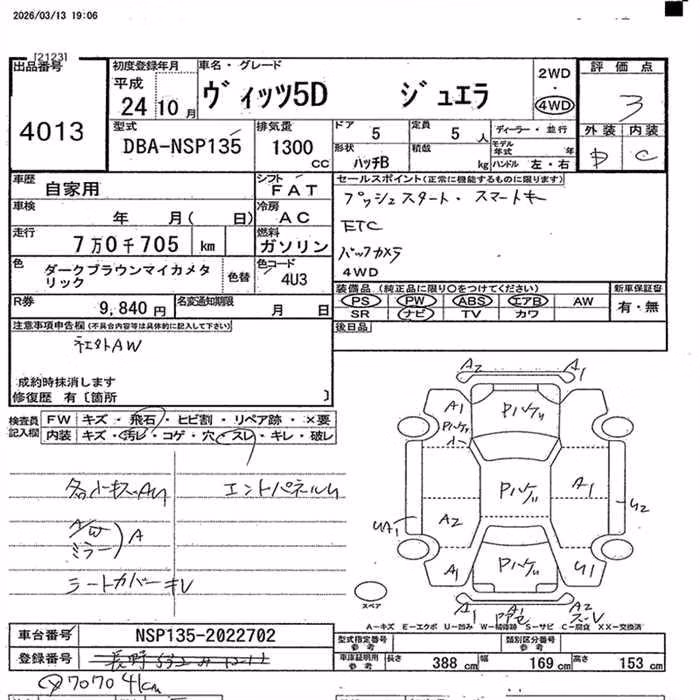 2026/03/13 19:06
[2123]
出品番号
4013
初度登録年月
平成
24 10 月
車名・グレード
ヴィッツ5D ジュエラ
2WD
・
4WD
評価点
3
外装 内装
D C
型式
DBA-NSP135
排気量
1300
CC
ドア
5
定員
5 人
ディーラー・並行
モデル年式 年
形状
ハッチB
積載
kg
ハンドル 左・右
車歴
自家用
シフト
FAT
セールスポイント(正常に機能するものに限ります)
プッシュスタート・スマートキー
ETC
バックカメラ
4WD
車検
年 月( 日)
冷房
AC
走行
7万0千705 km
燃料
ガソリン
色
ダークブラウンマイカメタリック
色替
色コード
4U3
装備品(純正品に限り○をつけてください)
新車保証書
PS PW ABS エアB AW
有・無
SR ナビ TV カワ
R券
9,840 円
名変通知期限
月 日
後日品
注意事項申告欄(不具合内容等は具体的に記入して下さい)
社外AW
成約時抹消します
修復歴 有〔箇所 〕
検査員記入欄
FW キズ・飛石・ヒビ割・リペア跡・×要
内装 キズ・汚レ・コゲ・穴・スレ・キレ・破レ
各小キズAU
エンドパネルU
A/W
ミラー
A
シートカバーキレ
A2 A1
A1
Pパケ
A2
A1
UA1
U2
A1
U1
A1
A2
スペア
A－キズ E－エクボ U－凹み W－補修跡 S－サビ C－腐食 XX－交換済
車台番号
NSP135-2022702
登録番号
長野
型式指定番号
参考
類別区分番号
参考
車庫証明用
参考
長さ
388 cm
幅
169 cm
高さ
153 cm
70704km